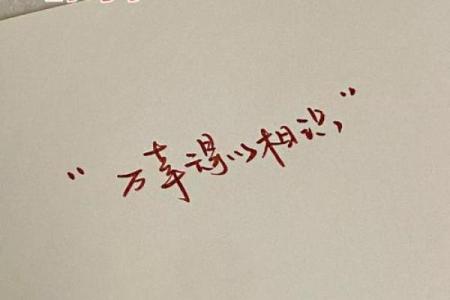 “万幸得以相识,”